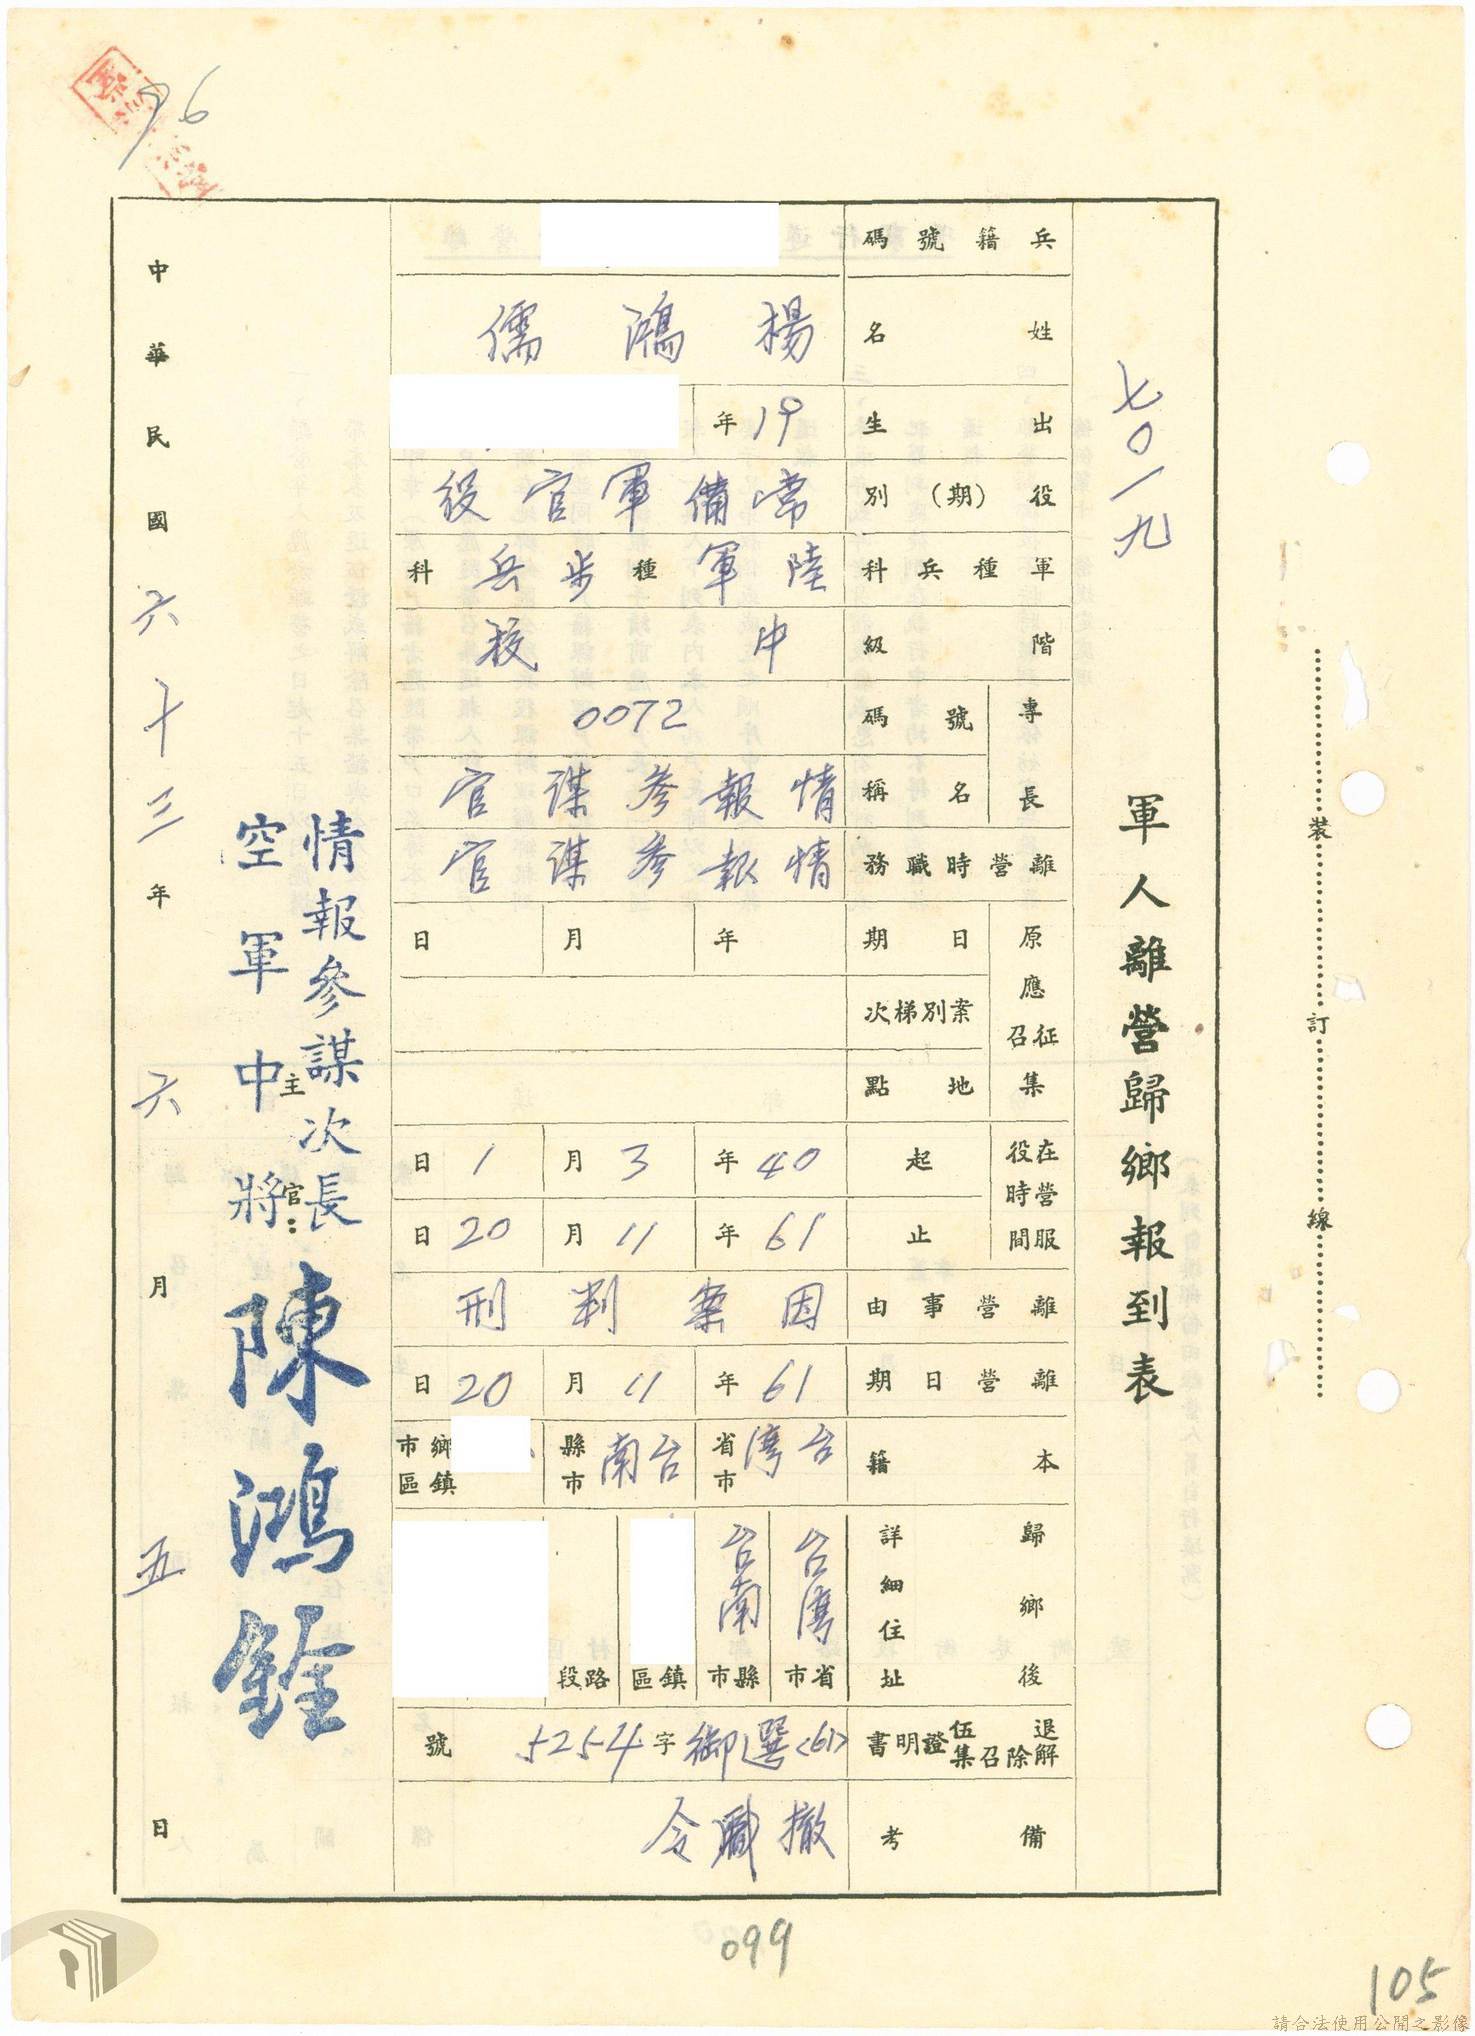 96
七〇一九
軍人離營歸鄉報到表
兵籍號碼
姓名 楊鴻儒
出生 19年
役(期)別 常備軍官役
軍種兵科 陸軍種步兵科
階級 中校
專長 號碼 0072
名稱 情報參謀官
離營時職務 情報參謀官
原應征召集 日期 年 月 日
案別梯次
地點
在營服役時間 起 40年3月1日
止 61年11月20日
離營事由 因案判刑
離營日期 61年11月20日
本籍 台灣省市 台南縣市 鄉鎮市區
歸鄉後詳細住址 台灣省市 台南縣市 鎮區 路段
退伍解除召集證明書 <61>選御字5254號
備考 撤職令
主官:
情報參謀次長
空軍中將 陳鴻銓
中華民國六十三年六月五日
裝訂線
099
105
請合法使用公開之影像